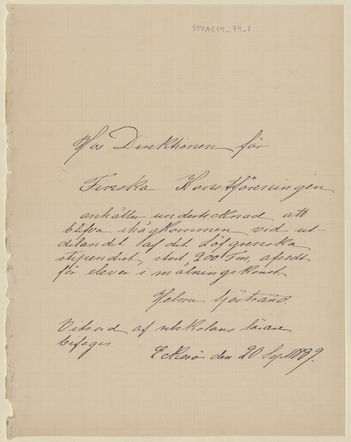 STYAC14_74_1
Hos Direktionen för
Finska Konstföreningen
anhåller undertecknad, att
blifva ihågkommen vid ut-
delandet af det Löfgrenska
stipendiet, stort 900 Fm, afsedt
för elever i målningskonst
Helmi Sjöstrand
Vitsord af ritskolans lärare
bifogas
Eckerö den 20 Sept. 1899.